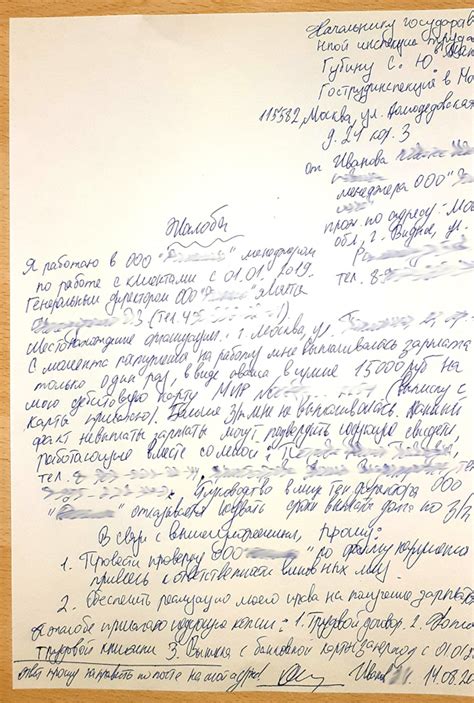 Начальнику государстве
нной инспекции труда в
Губину С. Ю.
Гострудинспекция в Мо
115582, Москва, ул. Домодедовская
д. 24 кор. 3
от Иванова
менеджера ООО "
прож. по адресу: Мос
обл, г. Видное, ул.
тел. 8-9
Жалоба
Я работаю в ООО " " менеджером
по работе с клиентами с 01.01.2019.
Генеральным директором ООО " "
(тел. 4
Местонахождение организации: г. Москва, ул.
С момента поступления на работу мне выплачивалась зарплата
только один раз, в виде аванса в сумме 15000 руб на
мою дебетовую карту МИР № выписку с
карты прилагаю). Больше З/п мне не выплачивалась.
факт невыплаты зарплаты могут подтвердить следующие свидетели
работающие вместе со мной:
тел. 8-
Руководство в лице ген директора ООО
" " отказывается назвать сроки выплаты долга по З/П.
В связи с вышеизложенным, прошу:
1. Провести проверку ООО по факту
привлечь к ответственности виновных лиц.
2. Обеспечить реализацию моего права на получение зарплаты
К жалобе прилагаю следующие копии: 1. Трудовой договор. 2.
трудовой книжки 3. Выписка с банковской карты за период с 01.01
Ответ прошу направить по почте на мой адрес. Иван 14.08.20